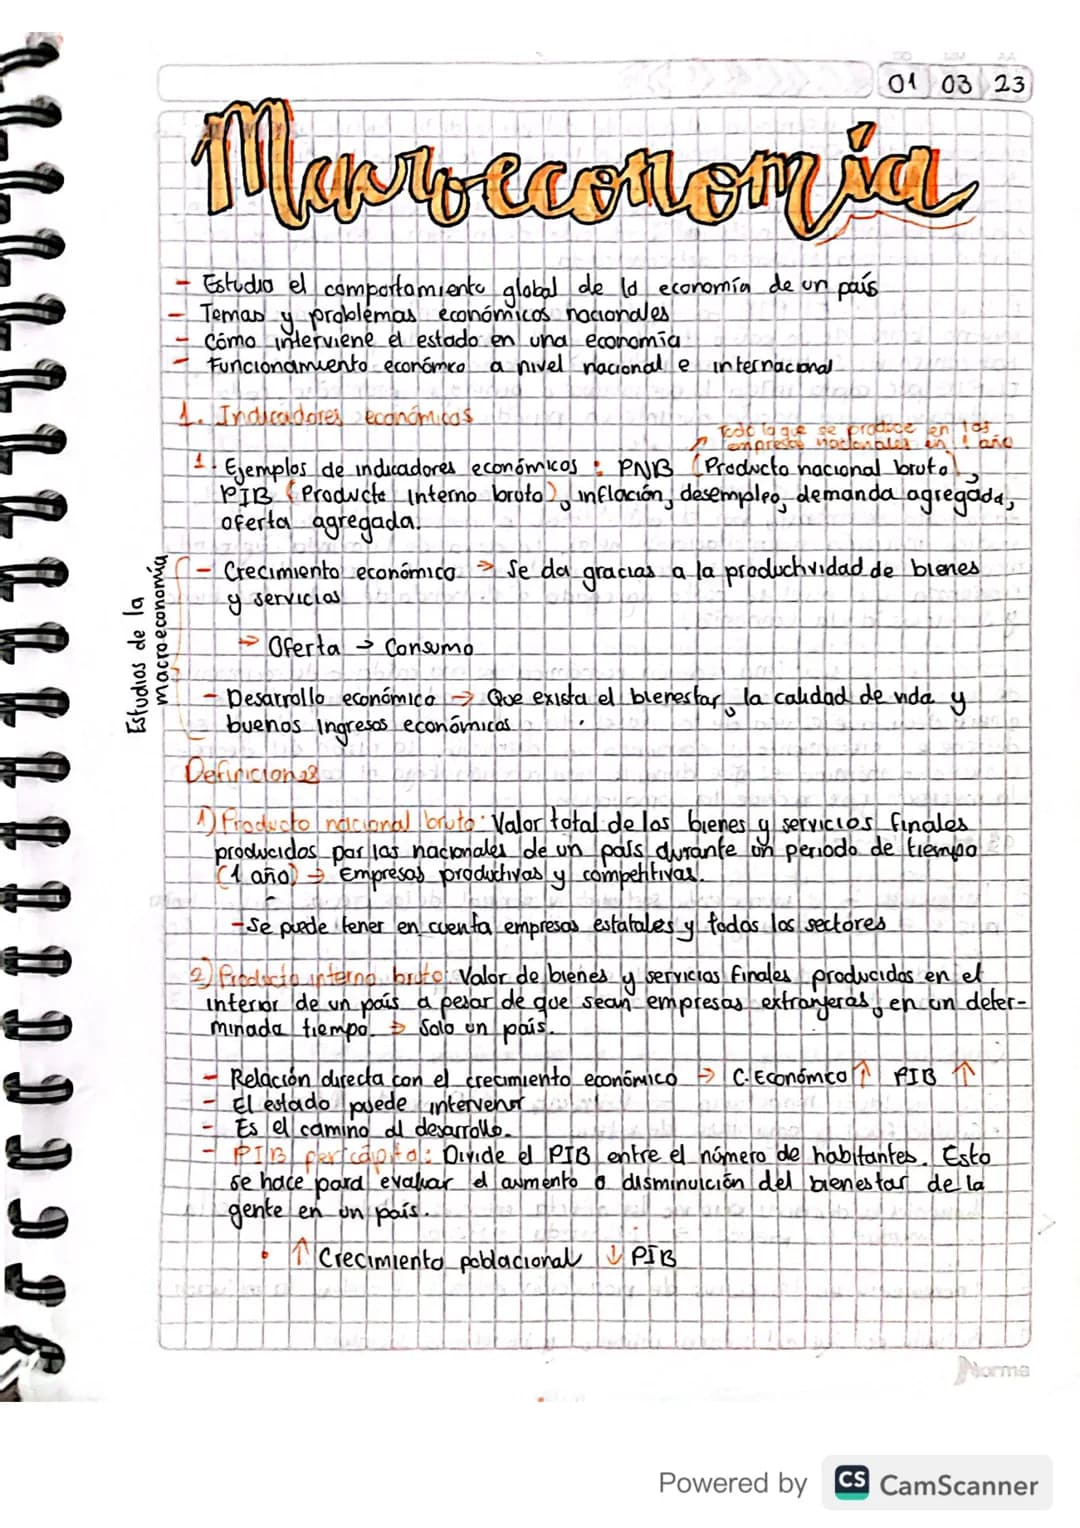 01 03 23
Macroeconomía
- Estudia el comportamiento global de la economía de un país
- Temas y problemas económicos nacionales
- Cómo interviene el estado en una economía
- Funcionamiento económico a nivel nacional e internacional
1. Indicadores económicos
Todo lo que se produce en las
empresas nacionales en 1 año
1. Ejemplos de indicadores económicos : PNB (Producto nacional bruto),
PIB (Producto Interno bruto), inflación, desempleo, demanda agregada,
oferta agregada.
Estudios de la
macroeconomía
- Crecimiento económico → Se da gracias a la productividad de bienes
y servicios
→ Oferta → Consumo
- Desarrollo económico → Que exista el bienestar, la calidad de vida y
buenos ingresos económicos.
Definiciones
1) Producto nacional bruto: Valor total de los bienes y servicios finales
producidos por las nacionales de un país durante un periodo de tiempo
(1 año) → Empresas productivas y competitivas.
- Se puede tener en cuenta empresas estatales y todos los sectores
2) Producto interno bruto: Valor de bienes y servicios finales producidos en el
interior de un país a pesar de que sean empresas extranjeras, en un deter-
minada tiempo. → Solo un país.
- Relación directa con el crecimiento económico → C. Económico ↑ PIB ↑
- El estado puede intervenir
- Es el camino al desarrollo.
- PIB per cápita: Divide el PIB entre el número de habitantes. Esto
se hace para evaluar el aumento o disminuición del bienestar de la
gente en un país.
• ↑ Crecimiento poblacional ↓ PIB
Norma
Powered by CS CamScanner